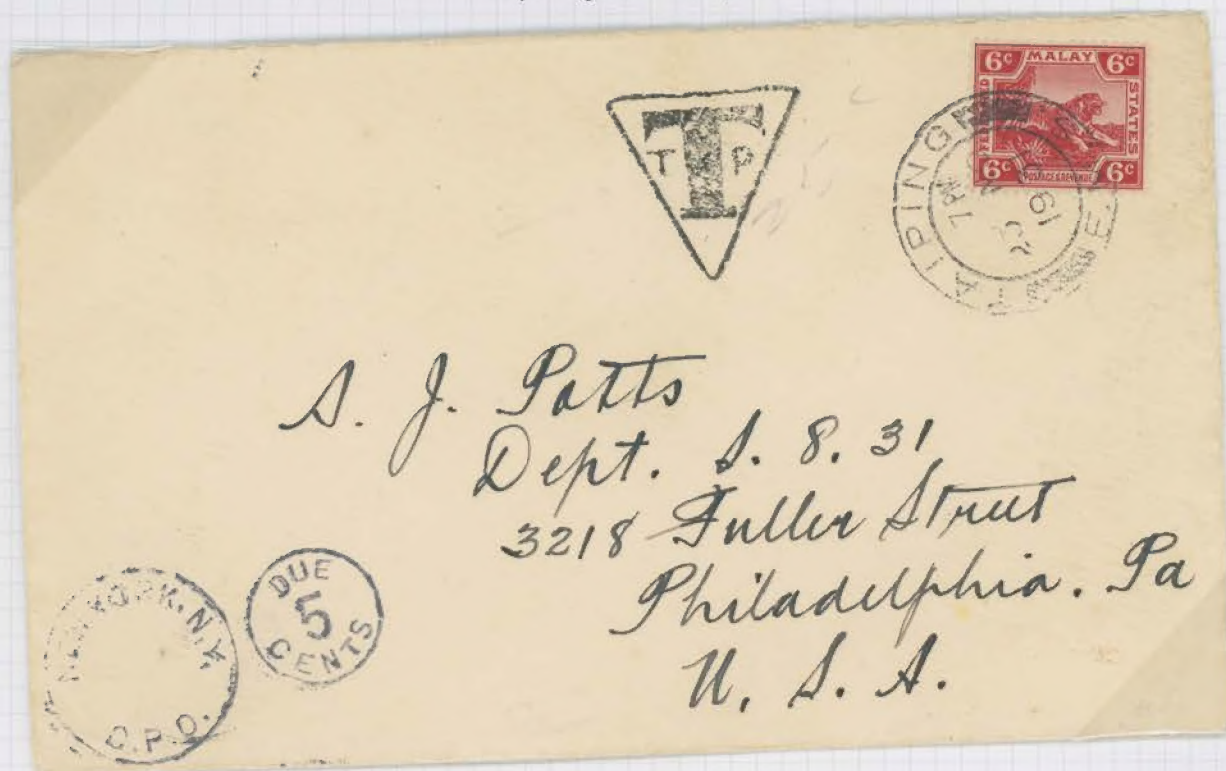 6c MALAY 6c
STATES
6c POSTAGE & REVENUE 6c
TAIPING
7 PM
19
T
T P
S. J. Potts
Dept. S. 8. 31
3218 Fuller Street
Philadelphia. Pa
U. S. A.
DUE
5
CENTS
NEW YORK. N.Y.